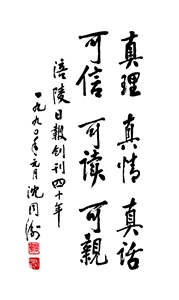 真理 真情 真话
可信 可读 可親
涪陵日報创刊四十年
一九九〇年元月 沈同衡